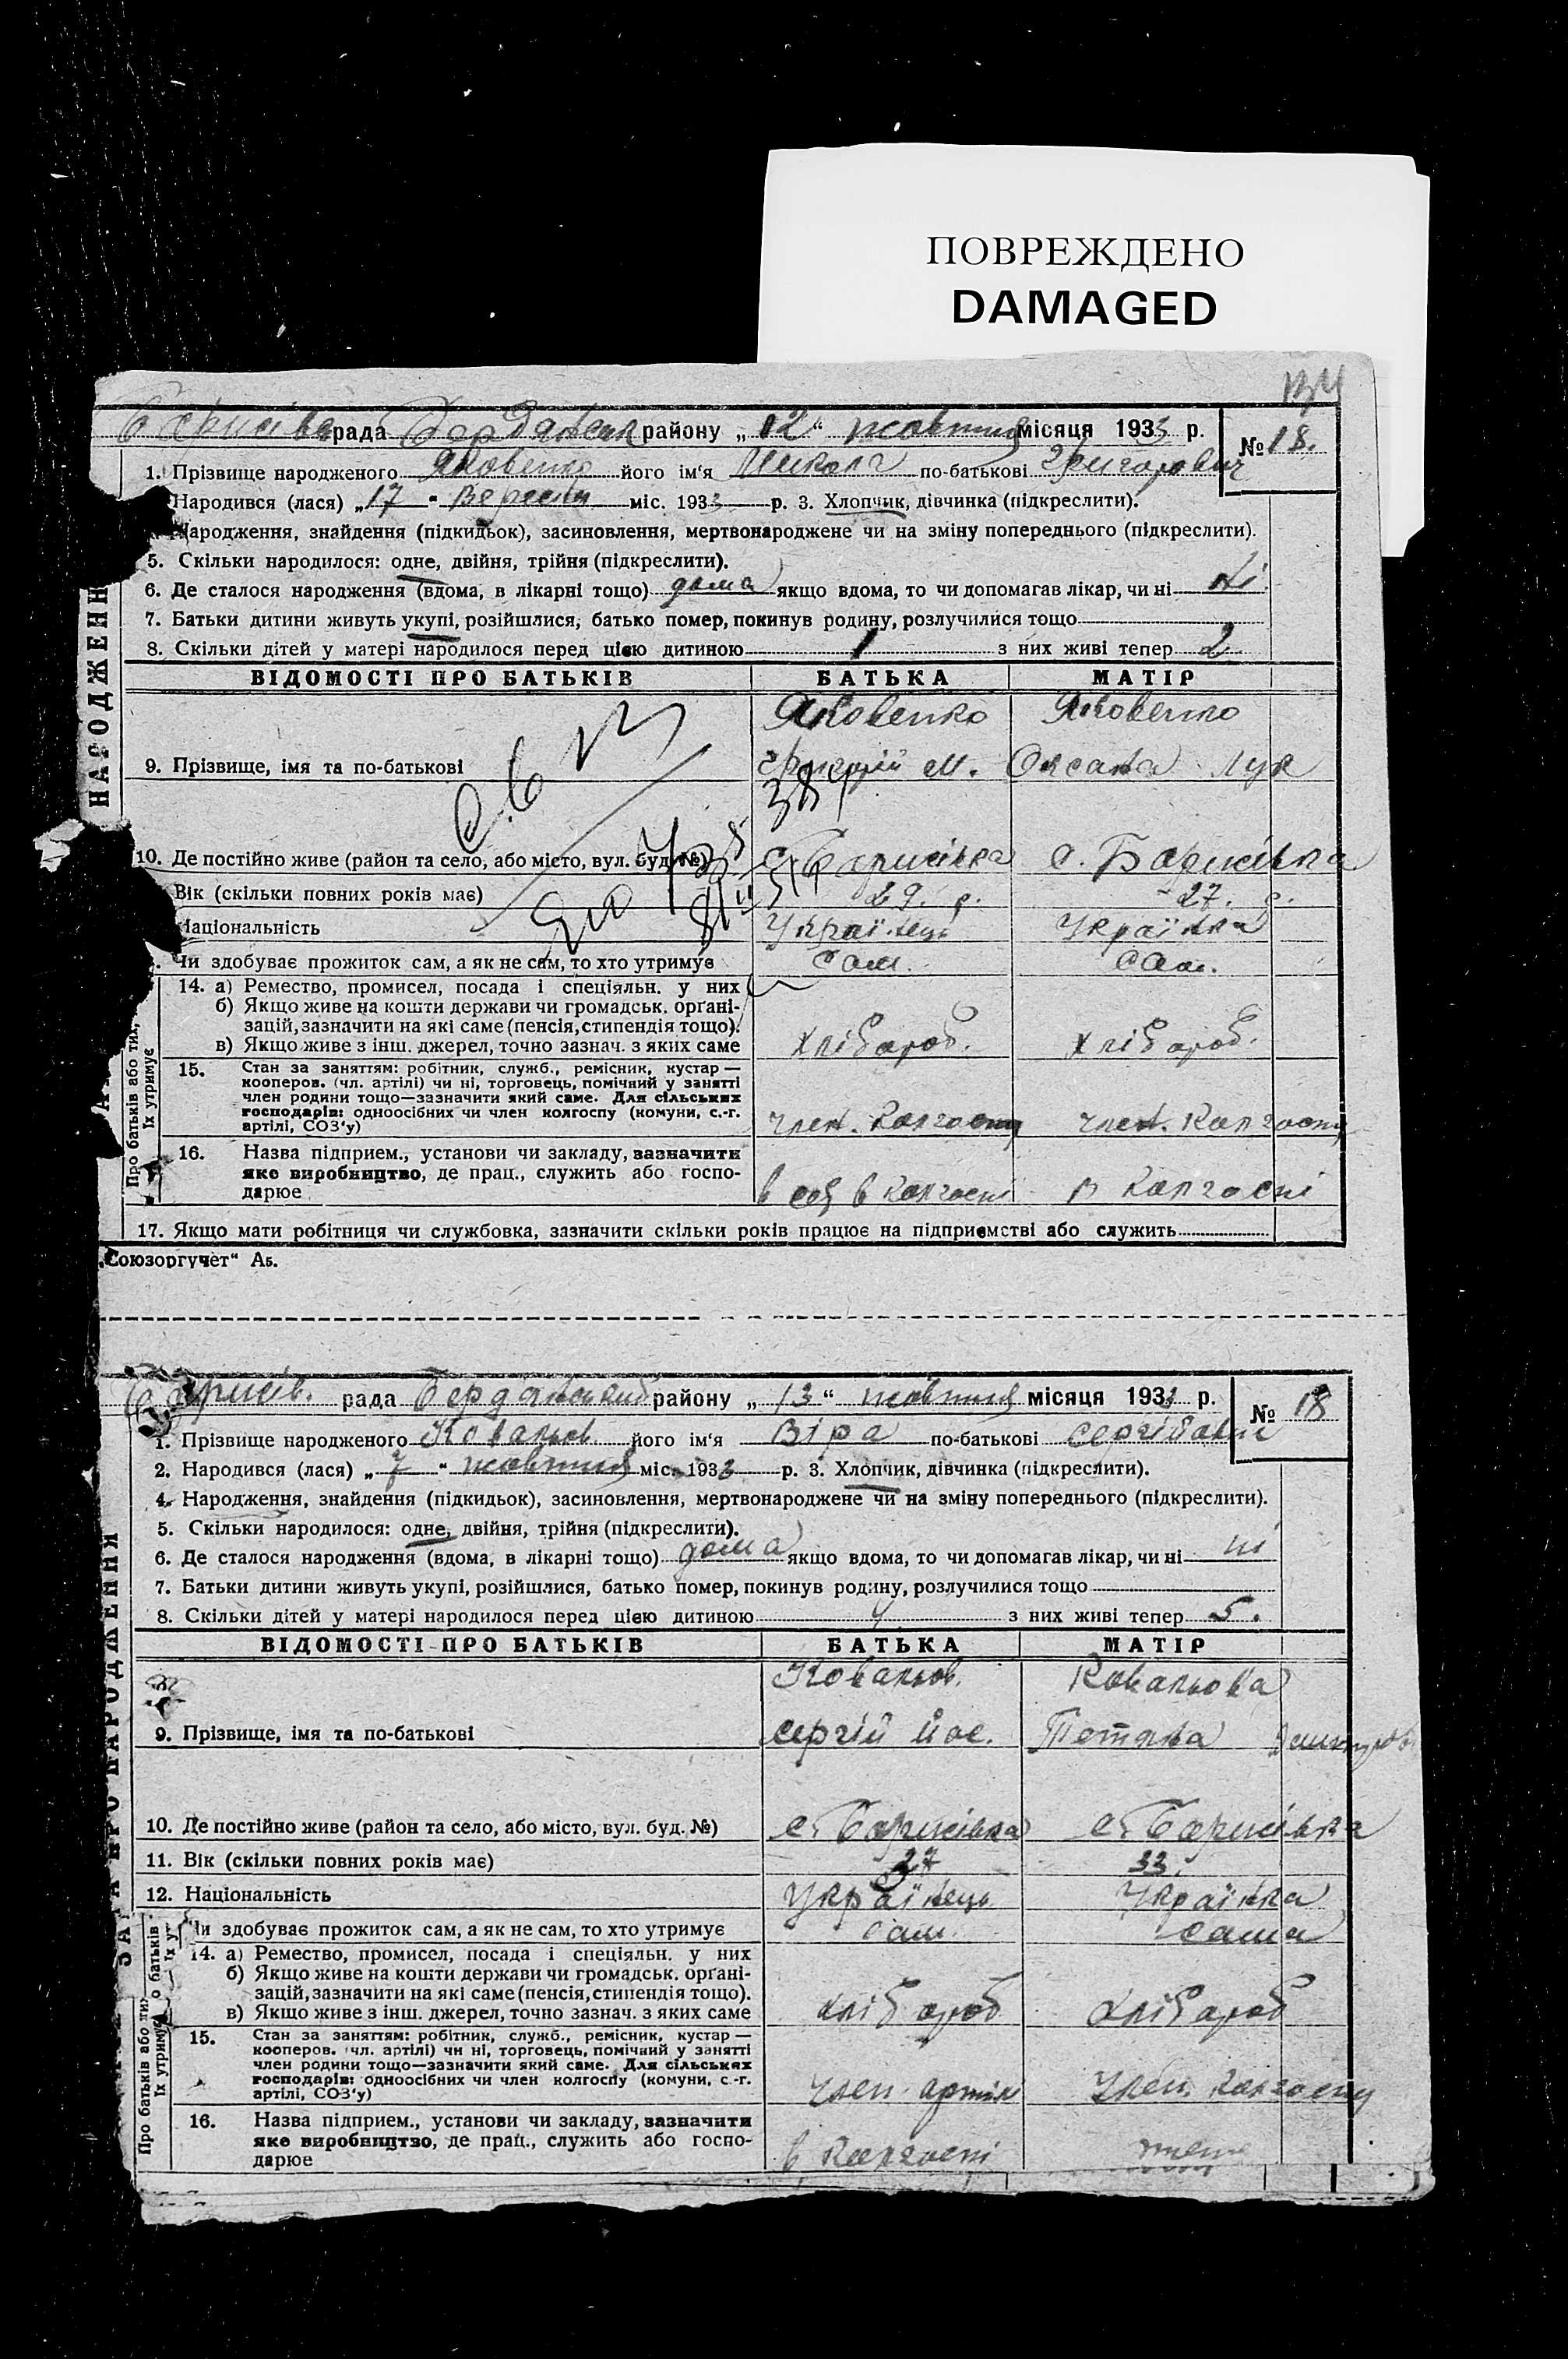 ПОВРЕЖДЕНО
DAMAGED
134
Борисівс рада Бердянськ району „12“ жовтня місяця 1933 р. № 18.
1. Прізвище народженого Яковенко його ім'я Микола по-батькові Григорович
Народився (лася) „17“ Вересня міс. 1933 р. 3. Хлопчик, дівчинка (підкреслити).
Народження, знайдення (підкидьок), засиновлення, мертвонароджене чи на зміну попереднього (підкреслити).
5. Скільки народилося: одне, двійня, трійня (підкреслити).
6. Де сталося народження (вдома, в лікарні тощо) дома якщо вдома, то чи допомагав лікар, чи ні ні.
7. Батьки дитини живуть укупі, розійшлися, батько помер, покинув родину, розлучилися тощо
8. Скільки дітей у матері народилося перед цією дитиною 1 з них живі тепер 2
НАРОДЖЕНН
ВІДОМОСТІ ПРО БАТЬКІВ БАТЬКА МАТІР
Яковенко Яковенко
9. Прізвище, імя та по-батькові Григорій М. Оксана Лук
10. Де постійно живе (район та село, або місто, вул. буд. №) с. Борисівка с. Борисівка
Вік (скільки повних років має) 29. р. 27. р.
Національність Українець Українка
Чи здобуває прожиток сам, а як не сам, то хто утримує Сам. Сам.
Про батьків або тих,
їх утримує
14. а) Ремество, промисел, посада і спеціяльн. у них
б) Якщо живе на кошти держави чи громадськ. орґані-
зацій, зазначити на які саме (пенсія, стипендія тощо).
в) Якщо живе з інш. джерел, точно зазнач. з яких саме хлібороб. хлібороб.
15. Стан за заняттям: робітник, служб., ремісник, кустар —
кооперов. (чл. артілі) чи ні, торговець, помічний у занятті
член родини тощо—зазначити який саме. Для сільських
господарів: одноосібних чи член колгоспу (комуни, с.-г.
артілі, СОЗ'у) член. Колгоспу член. Колгоспу
16. Назва підприєм., установи чи закладу, зазначити
яке виробництво, де прац., служить або госпо-
дарюе в Колгоспі в Колгоспі
17. Якщо мати робітниця чи службовка, зазначити скільки років працює на підприємстві або служить
„Союзоргучет“ Аб.
Борисів. рада Бердянський району „13“ жовтня місяця 1933 р. № 18
1. Прізвище народженого Ковальов його ім'я Віра по-батькові Сергіївна
2. Народився (лася) „7“ жовтня міс. 1933 р. 3. Хлопчик, дівчинка (підкреслити).
4. Народження, знайдення (підкидьок), засиновлення, мертвонароджене чи на зміну попереднього (підкреслити).
5. Скільки народилося: одне, двійня, трійня (підкреслити).
6. Де сталося народження (вдома, в лікарні тощо) дома якщо вдома, то чи допомагав лікар, чи ні ні
7. Батьки дитини живуть укупі, розійшлися, батько помер, покинув родину, розлучилися тощо
8. Скільки дітей у матері народилося перед цією дитиною 4 з них живі тепер 5.
ВІДОМОСТІ ПРО БАТЬКІВ БАТЬКА МАТІР
Ковальов. Ковальова
9. Прізвище, імя та по-батькові Сергій Йос. Тетяна
10. Де постійно живе (район та село, або місто, вул. буд. №) с. Борисівка с. Борисівка
11. Вік (скільки повних років має) 37 33.
12. Національність Українець Українка
Чи здобуває прожиток сам, а як не сам, то хто утримує сам. сама
Про батьків або тих
їх утримує
14. а) Ремество, промисел, посада і спеціяльн. у них
б) Якщо живе на кошти держави чи громадськ. орґані-
зацій, зазначити на які саме (пенсія, стипендія тощо).
в) Якщо живе з інш. джерел, точно зазнач. з яких саме хлібороб хлібороб
15. Стан за заняттям: робітник, служб., ремісник, кустар —
кооперов. (чл. артілі) чи ні, торговець, помічний у занятті
член родини тощо—зазначити який саме. Для сільських
господарів: одноосібних чи член колгоспу (комуни, с.-г.
артілі, СОЗ'у) член. артілі член. Колгоспу
16. Назва підприєм., установи чи закладу, зазначити
яке виробництво, де прац., служить або госпо-
дарюе в Колгоспі